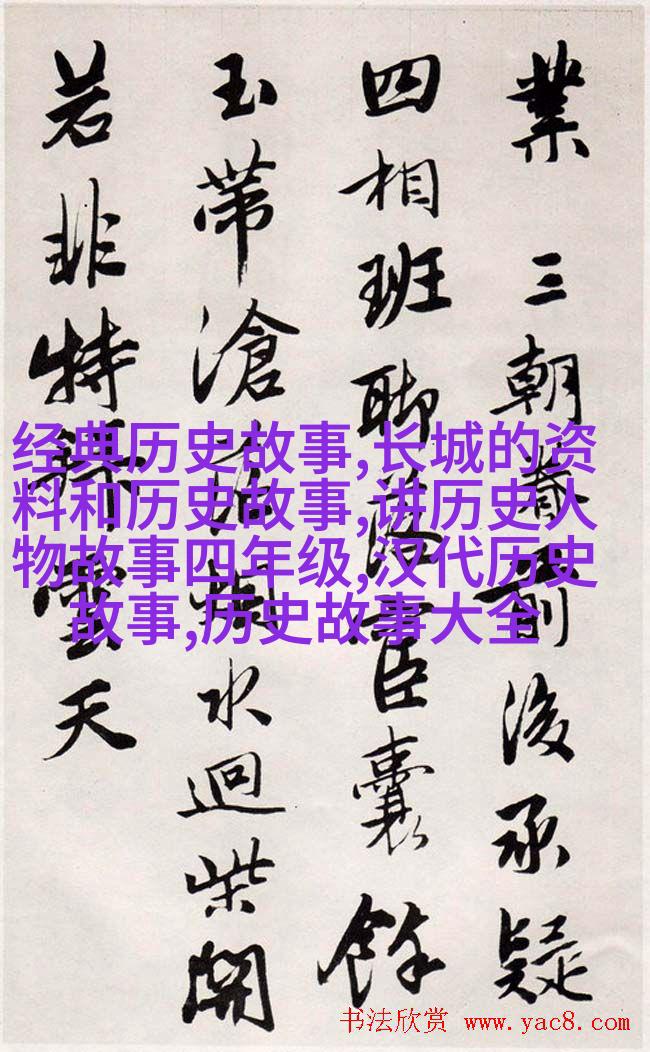 業三朝眷前後承疑
四相班聊臣囊餘
玉帶滄水迴柴開
若非特雲天
经典历史故事,长城的资
料和历史故事,讲历史人
物故事四年级,汉代历史
故事,历史故事大全
书法欣赏 www.yac8.com